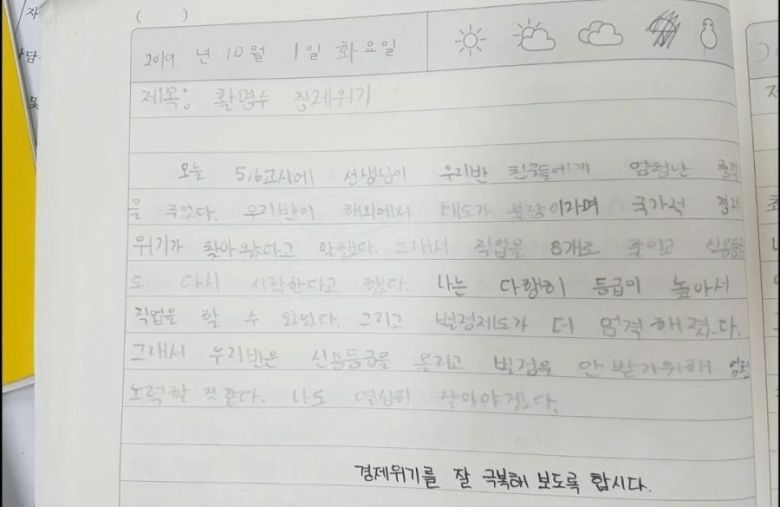 ( )
2019 년 10월 1일 화요일
제목: 활명수 경제위기
오늘 5,6교시에 선생님이 우리반 친구들에게 엄청난 충격
을 주었다. 우리반이 해외에서 태도가 불량이라며 국가적 경제
위기가 찾아왔다고 말했다. 그래서 직업을 8개로 줄이고 신용등급
도 다시 시작한다고 했다. 나는 다행히 등급이 높아서
직업을 할 수 있었다. 그리고 벌점제도가 더 엄격해졌다.
그래서 우리반은 신용등급을 올리고 벌점을 안 받기위해
노력할 것 같다. 나도 열심히 살아야겠다.
경제위기를 잘 극복해 보도록 합시다.